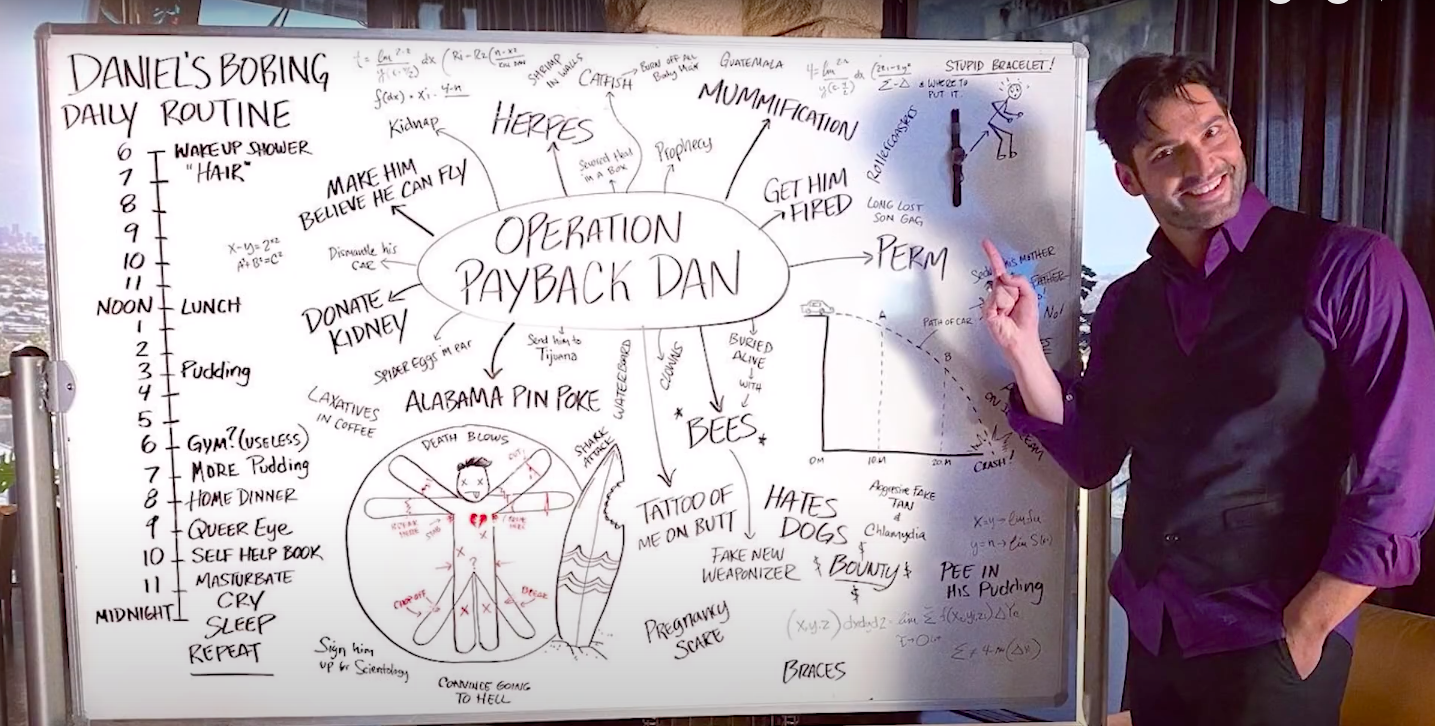 DANIEL'S BORING
DAILY ROUTINE
6 WAKE UP SHOWER
7 "HAIR"
8
9
10
11
NOON LUNCH
1
2
3 Pudding
4
5
6 GYM? (USELESS)
7 MORE Pudding
8 HOME DINNER
9 QUEER EYE
10 SELF HELP BOOK
11 MASTURBATE
MIDNIGHT CRY
SLEEP
REPEAT
OPERATION
PAYBACK DAN
Kidnap
HERPES
SHRIMP
IN WALLS
CATFISH
BURN OFF ALL
Body Hair
GUATEMALA
MUMMIFICATION
Severed Head
in a Box
Prophecy
MAKE HIM
BELIEVE HE CAN FLY
GET HIM
FIRED
Rollercoasters
STUPID BRACELET!
& WHERE TO
PUT IT.
LONG LOST
SON GAG
X-Y=2
A²+B²=C²
Dismantle his
CAR
PERM
HIS MOTHER
FATHER
No!
DONATE
KIDNEY
SPIDER EGGS in EAR
Send him to
Tijuana
WATERBOARD
CLOWNS
BURIED
ALIVE
WITH
*BEES*
A
PATH OF CAR
B
0M 10M 20M
CRASH!
LAXATIVES
IN COFFEE
ALABAMA PIN POKE
DEATH BLOWS
CHOP OFF
BREAK
SHARK
ATTACK
TATTOO OF
ME ON BUTT
HATES
DOGS
Aggressive FAKE
TAN
&
Chlamydia
FAKE NEW
WEAPONIZER
$ BOUNTY $
$
PEE IN
His Pudding
Pregnancy
SCARE
BRACES
Sign him
up for Scientology
CONVINCE GOING
TO HELL